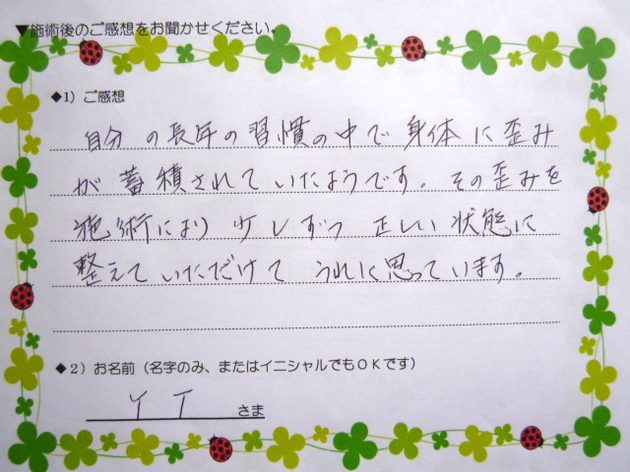 ▼施術後のご感想をお聞かせください。
◆1）ご感想
自分の長年の習慣の中で身体に歪み
が蓄積されていたようです。その歪みを
施術により少しずつ正しい状態に
整えていただけてうれしく思っています。
◆2）お名前（名字のみ、またはイニシャルでもＯＫです）
Y T さま